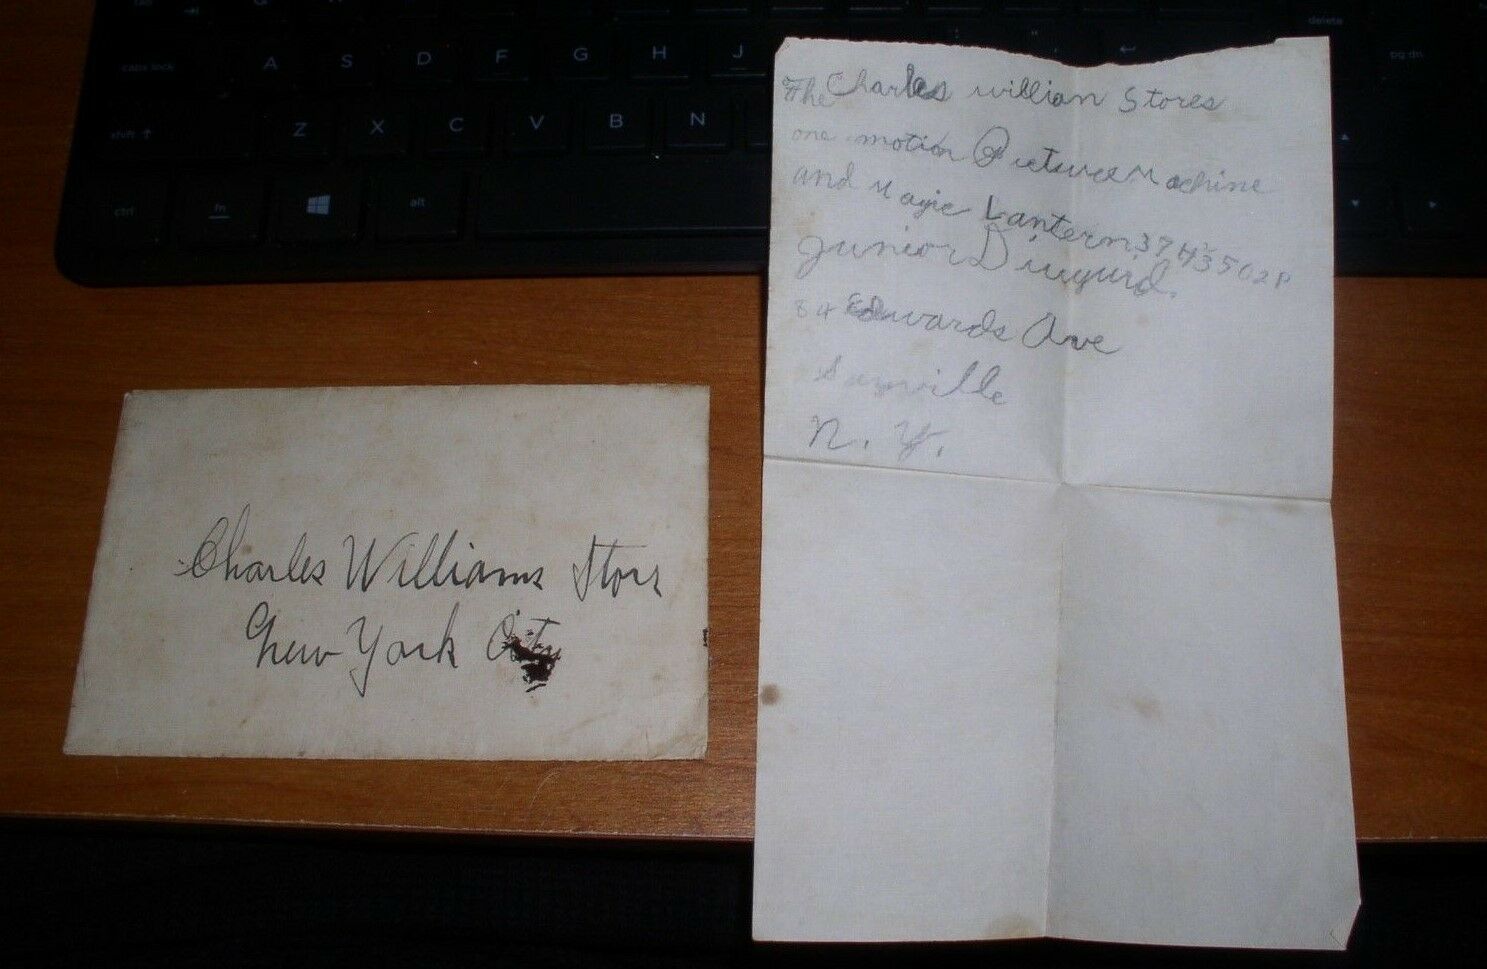 tab
caps lock
A S D F G H J
shift ↑
Z X C V B N
ctrl fn alt
delete
pg dn
The Charles william Stores
one motion Picture Machine
and Magic Lantern 37H3502P
Junior
84 Edwards Ave
N. Y.
Charles Williams Stors
New York City